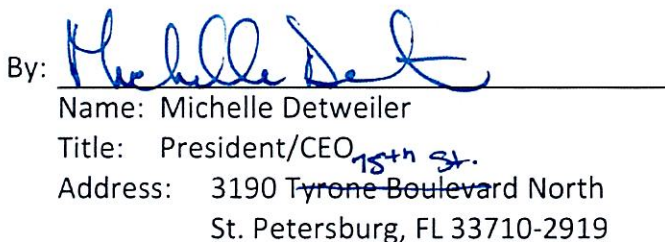 By: Michelle Det
Name: Michelle Detweiler
Title: President/CEO
75th St.
Address: 3190 Tyrone Boulevard North
St. Petersburg, FL 33710-2919